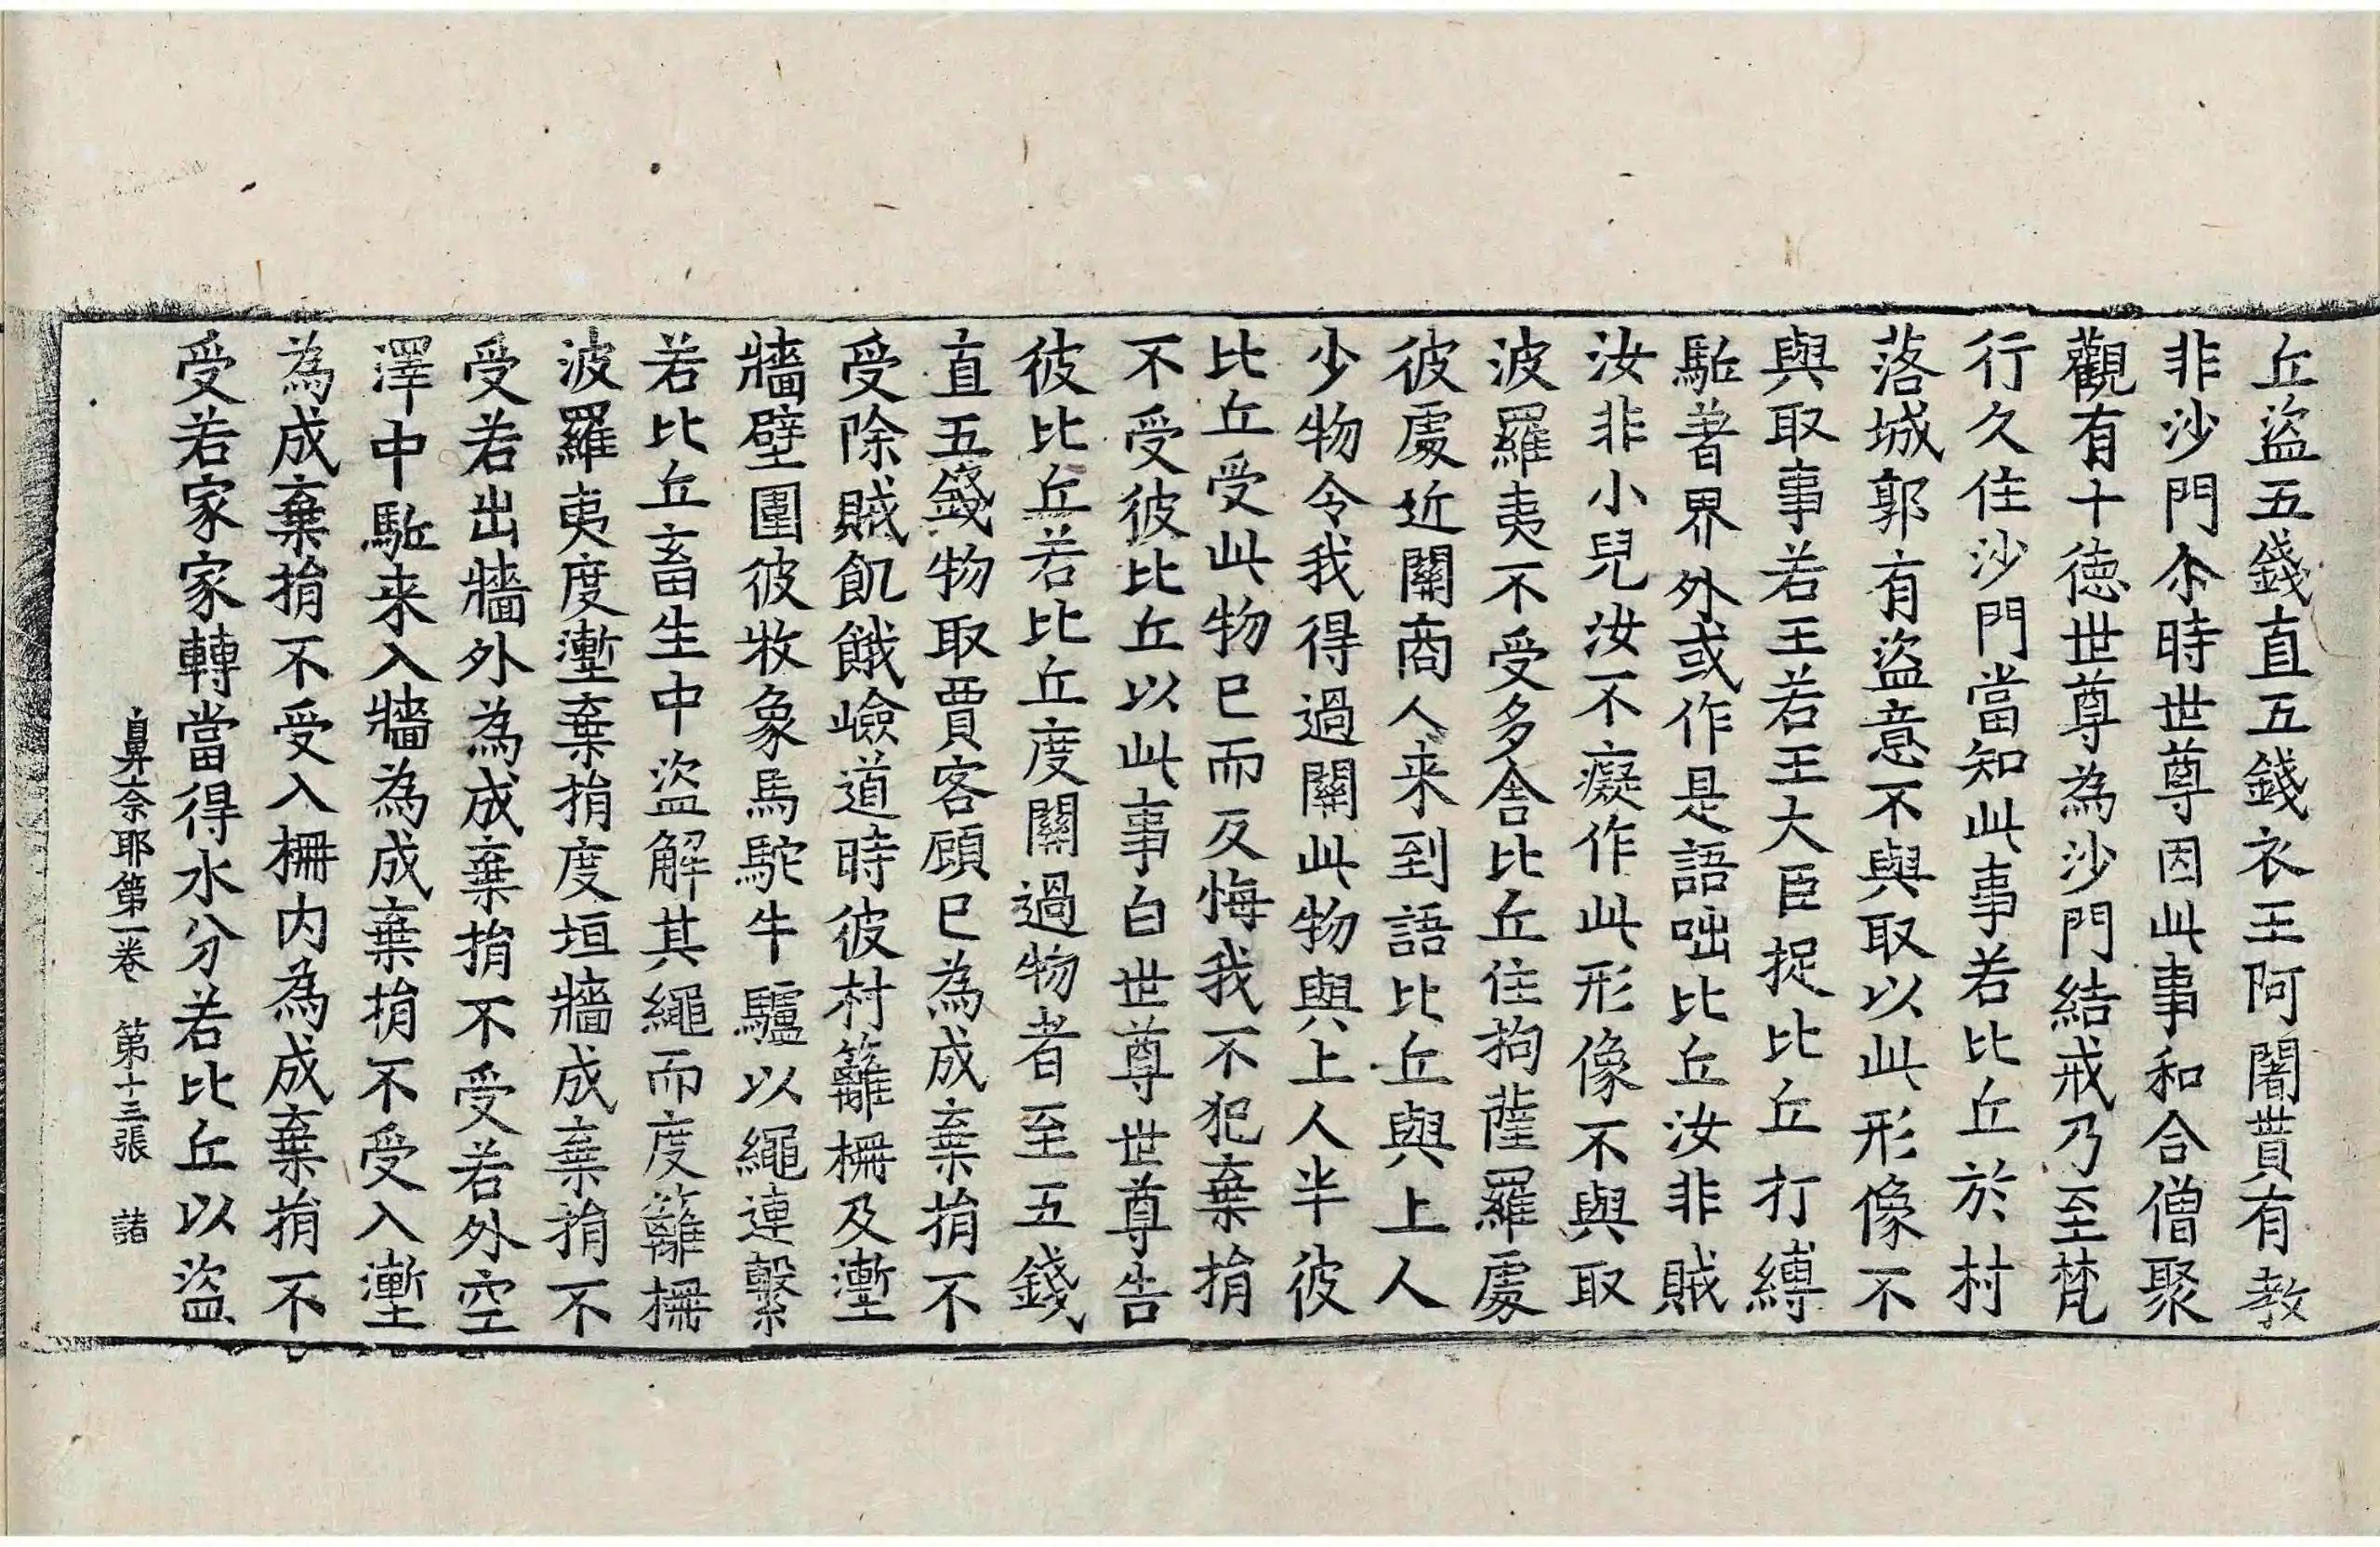 丘盜五錢直五錢衣王阿闍貰有教
非沙門尒時世尊因此事和合僧聚
觀有十德世尊為沙門結戒乃至梵
行久住沙門當知此事若比丘於村
落城郭有盜意不與取以此形像不
與取事若王若王大臣捉比丘打縛
駈著界外或作是語咄比丘汝非賊
汝非小兒汝不癡作此形像不與取
波羅夷不受多舍比丘住拘薩羅處
彼處近關商人来到語比丘與上人
少物令我得過關此物與上人半彼
比丘受此物已而反悔我不犯棄捐
不受彼比丘以此事白世尊世尊告
彼比丘若比丘度關過物者至五錢
直五錢物取賈客顧已為成棄捐不
受除賊飢餓嶮道時彼村籬柵及壍
牆壁圍彼牧象馬駝牛驢以繩連繫
若比丘畜生中盜解其繩而度籬柵
波羅夷度壍棄捐度垣牆成棄捐不
受若出牆外為成棄捐不受若外空
澤中駈来入牆為成棄捐不受入壍
為成棄捐不受入柵内為成棄捐不
受若家家轉當得水分若比丘以盜
鼻奈耶第一卷 第十三張 諸